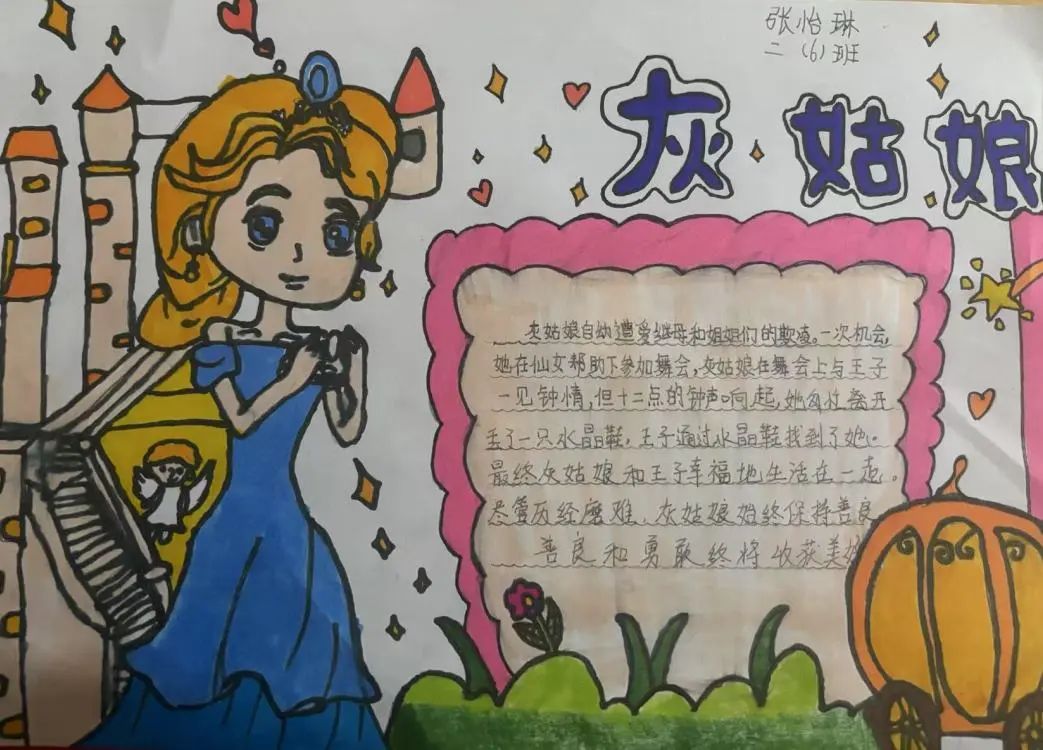 张怡琳
二（6）班
灰姑娘
灰姑娘自幼遭受继母和姐姐们的欺凌。一次机会，
她在仙女帮助下参加舞会，灰姑娘在舞会上与王子
一见钟情，但十二点的钟声响起，她匆忙离开
丢了一只水晶鞋。王子通过水晶鞋找到了她。
最终灰姑娘和王子幸福地生活在一起。
尽管历经磨难，灰姑娘始终保持善良
善良和勇敢终将收获美